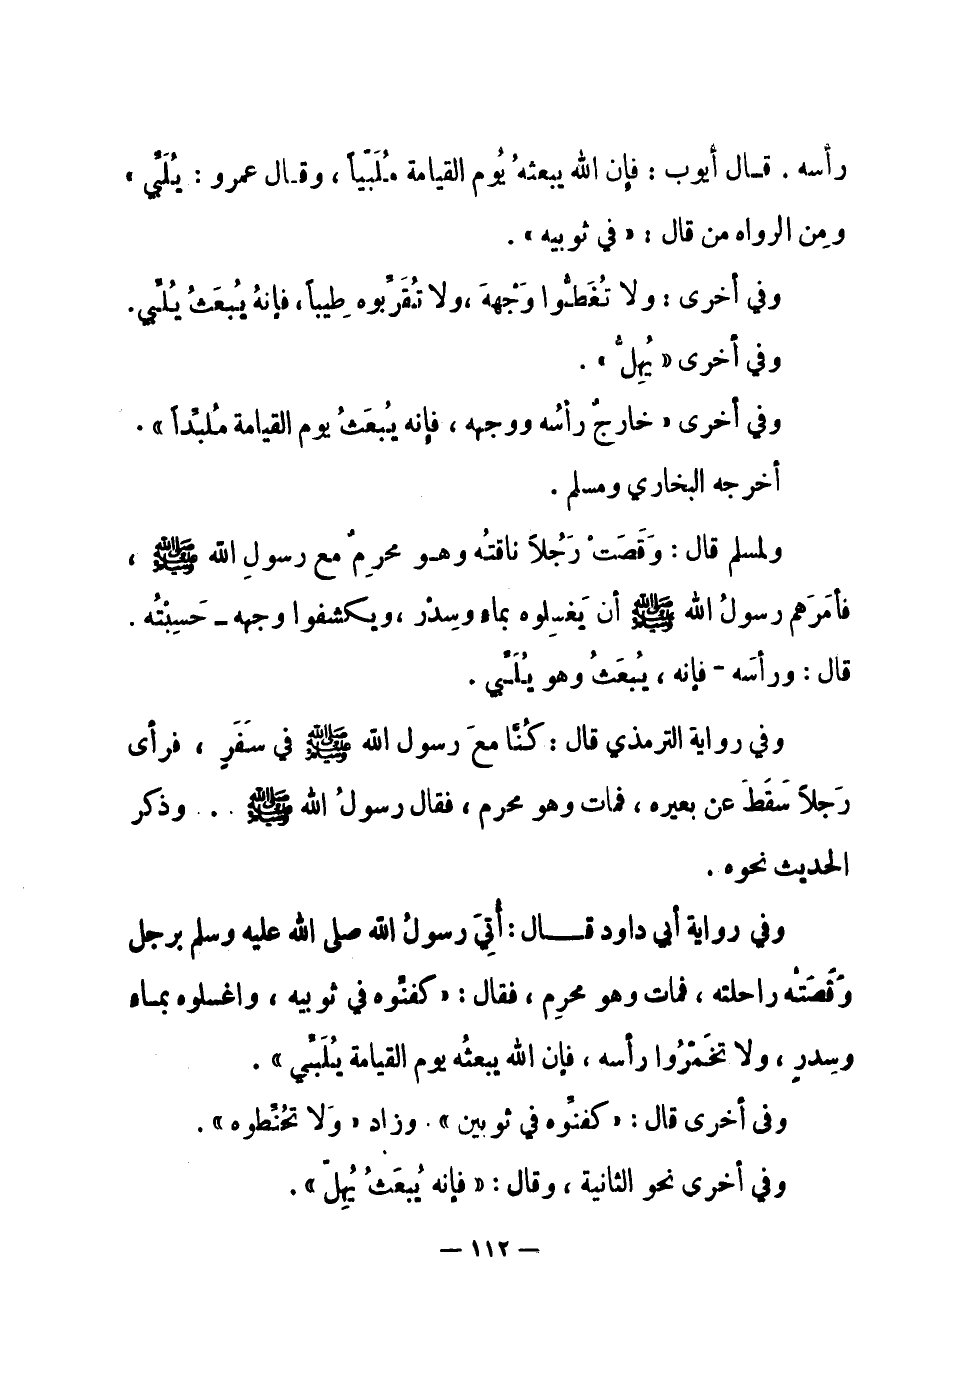 رأسه . قـال أيوب : فإن الله يبعثهُ يُوم القيامة مُلَبِّياً ، وقـال عمرو : يُلَبِّي »
ومِن الرواه من قال : « في ثوبيه » .
وفي أخرى : ولا تُغَطُّوا وَجْههَ ،ولا تُقَرِّبوه طِيباً، فإنهُ يُبعَثُ يُلَبِّي.
وفي أخرى « يُهِلُّ » .
وفي أخرى « خارجٌ رأسُه ووجهه ، فإنه يُبعَثُ يوم القيامة مُلبِّداً » .
أخرجه البخاري ومسلم .
ولمسلم قال : وَقَصَتْ رَجُلاً ناقتُه وهـو محرِمٌ مع رسولِ الله ﷺ ،
فأمَرَهم رسولُ الله ﷺ أن يَغسِلوه بماء وسِدْر ،ويكشفوا وجهه ـ حَسِبْتُه .
قال : ورأسَه - فإنه ، يُبعَثُ وهو يُلَبِّي .
وفي رواية الترمذي قال : كُنَّا معَ رسول الله ﷺ في سَفَرٍ ، فرأى
رَجلاً سَقَطَ عن بعيره ، فمات وهو محرم ، فقال رسولُ الله ﷺ . . . وذكر
الحديث نحوه .
وفي رواية أبي داود قـــال : أُتِيَ رسولُ الله صلى الله عليه وسلم برجل
وَقَصَتْه راحلته ، فمات وهو محرِم ، فقال : « كفنِّوه في ثوبيه ، واغسلوه بمـاء
وسِدرٍ ، ولا تخَمِّرُوا رأسه ، فإن الله يبعثُه يوم القيامة يُلَبِّي » .
وفى أخرى قال : « كفنِّوه في ثوبين » . وزاد « وَلا تُحَنِّطوه » .
وفي أخرى نحو الثانية ، وقال : « فإنه يُبعَثُ يُهِلّ » .
— ١١٢ —